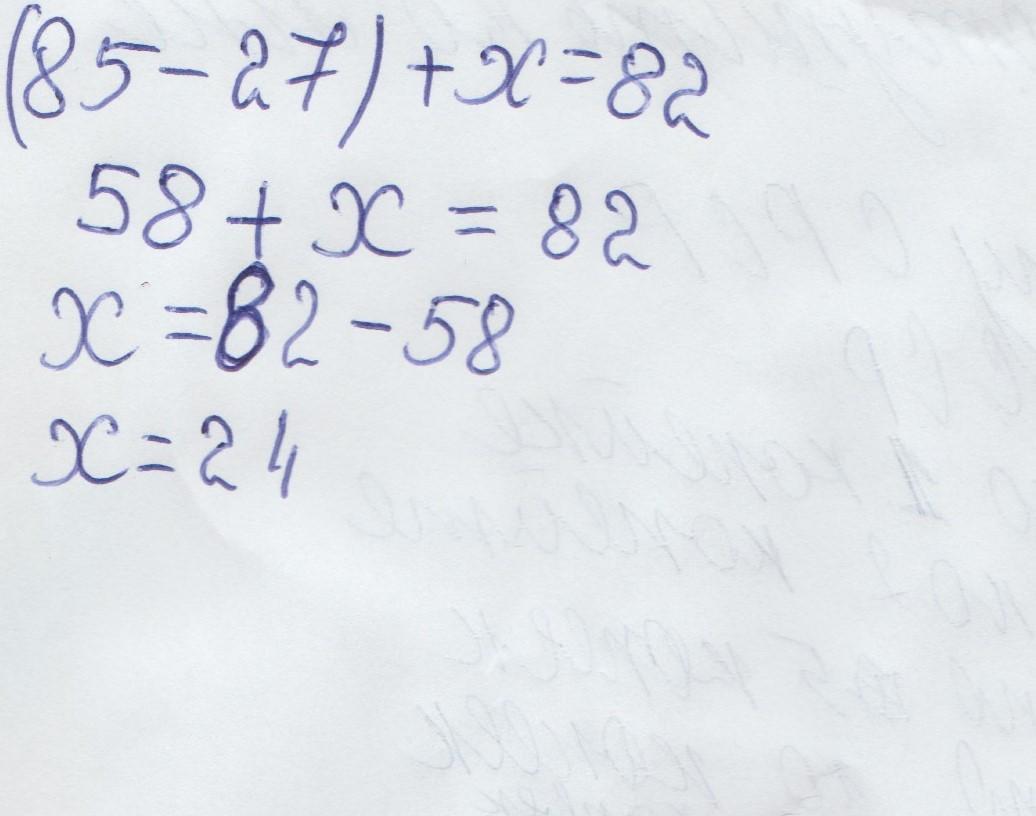 (85-27)+x=82
58+x=82
x=82-58
x=24